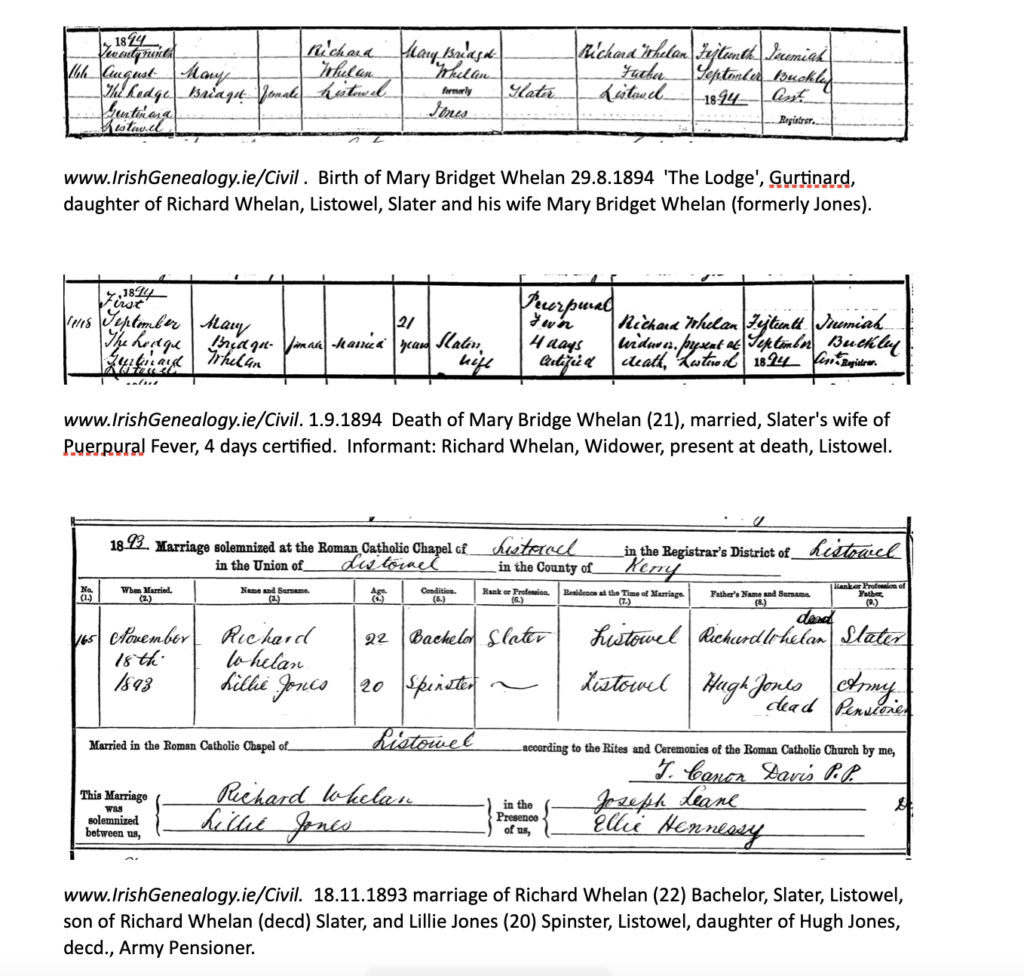 1894
Twenty ninth Richard Mary Bridget Richard Whelan Fifteenth Jeremiah
166 August Mary Whelan Whelan Father September Buckley
The Lodge Bridget Female Listowel formerly Slater Listowel 1894 Asst.
Gurtinard Jones
Listowel Registrar.
www.IrishGenealogy.ie/Civil . Birth of Mary Bridget Whelan 29.8.1894 'The Lodge', Gurtinard,
daughter of Richard Whelan, Listowel, Slater and his wife Mary Bridget Whelan (formerly Jones).
1894
First Puerpural
September Mary 21 Fever Richard Whelan Fifteenth Jeremiah
The Lodge Bridget Female Married years Slaters 4 days widower, present at September Buckley
Gurtinard Whelan wife Certified death, Listowel 1894 Asst. Registrar.
Listowel
www.IrishGenealogy.ie/Civil. 1.9.1894 Death of Mary Bridge Whelan (21), married, Slater's wife of
Puerpural Fever, 4 days certified. Informant: Richard Whelan, Widower, present at death, Listowel.
1893. Marriage solemnized at the Roman Catholic Chapel of Listowel in the Registrar's District of Listowel
in the Union of Listowel in the County of Kerry
No. (1.) When Married. (2.) Name and Surname. (3.) Age. (4.) Condition. (5.) Rank or Profession. (6.) Residence at the Time of Marriage. (7.) Father's Name and Surname. (8.) Rank or Profession of Father. (9.)
dead
165 November Richard 22 Bachelor Slater Listowel Richard Whelan Slater
18th Whelan
1893 Lillie Jones 20 Spinster Listowel Hugh Jones Army
dead Pensioner
Married in the Roman Catholic Chapel of Listowel according to the Rites and Ceremonies of the Roman Catholic Church by me,
T. Canon Davis P.P.
This Marriage was solemnized between us, Richard Whelan in the Presence of us, Joseph Leane
Lillie Jones Ellie Hennessy
www.IrishGenealogy.ie/Civil. 18.11.1893 marriage of Richard Whelan (22) Bachelor, Slater, Listowel,
son of Richard Whelan (decd) Slater, and Lillie Jones (20) Spinster, Listowel, daughter of Hugh Jones,
decd., Army Pensioner.